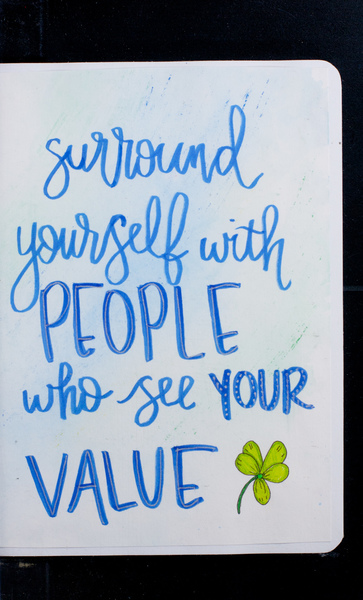 surround
yourself with
PEOPLE
who see YOUR
VALUE